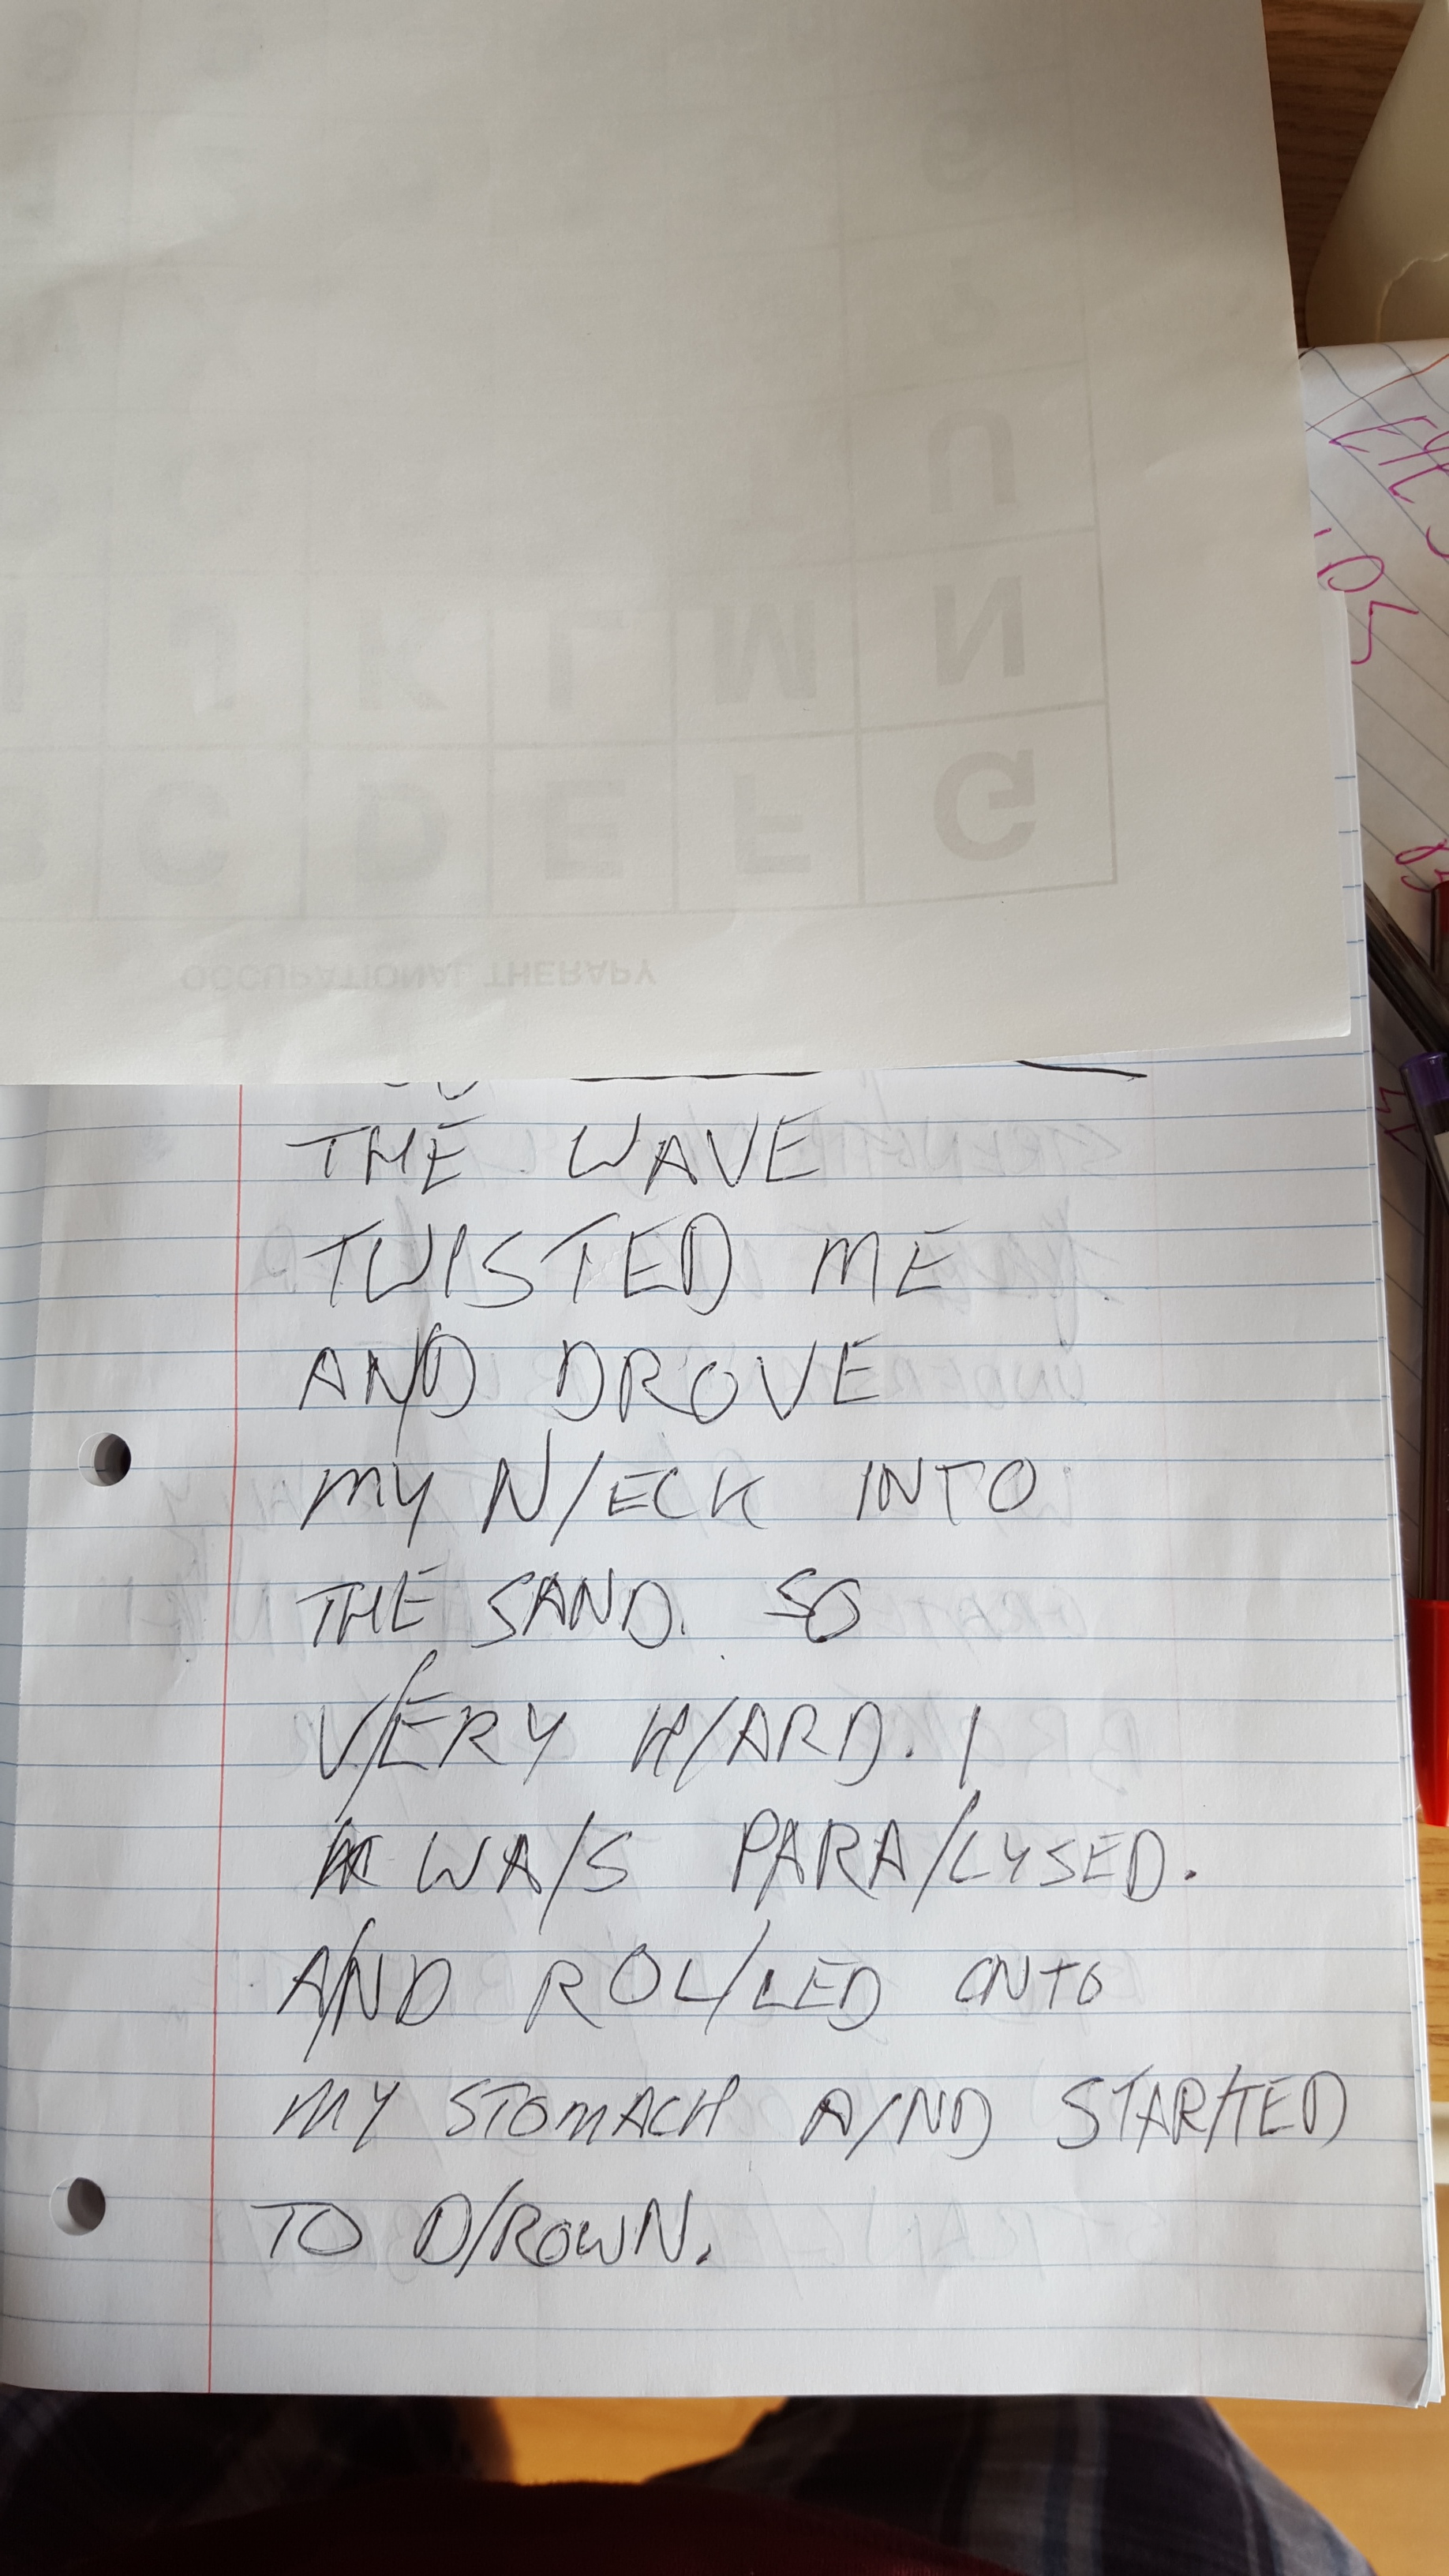 G
U
I J K L M N
B C D E F G
OCCUPATIONAL THERAPY
THE WAVE
TWISTED ME
AND DROVE
MY N/ECK INTO
THE SAND. SO
V/ERY H/ARD. I
WA/S PARA/LYSED.
A/ND ROL/LED ONTO
MY STOMACH A/ND STAR/TED
TO D/ROWN.